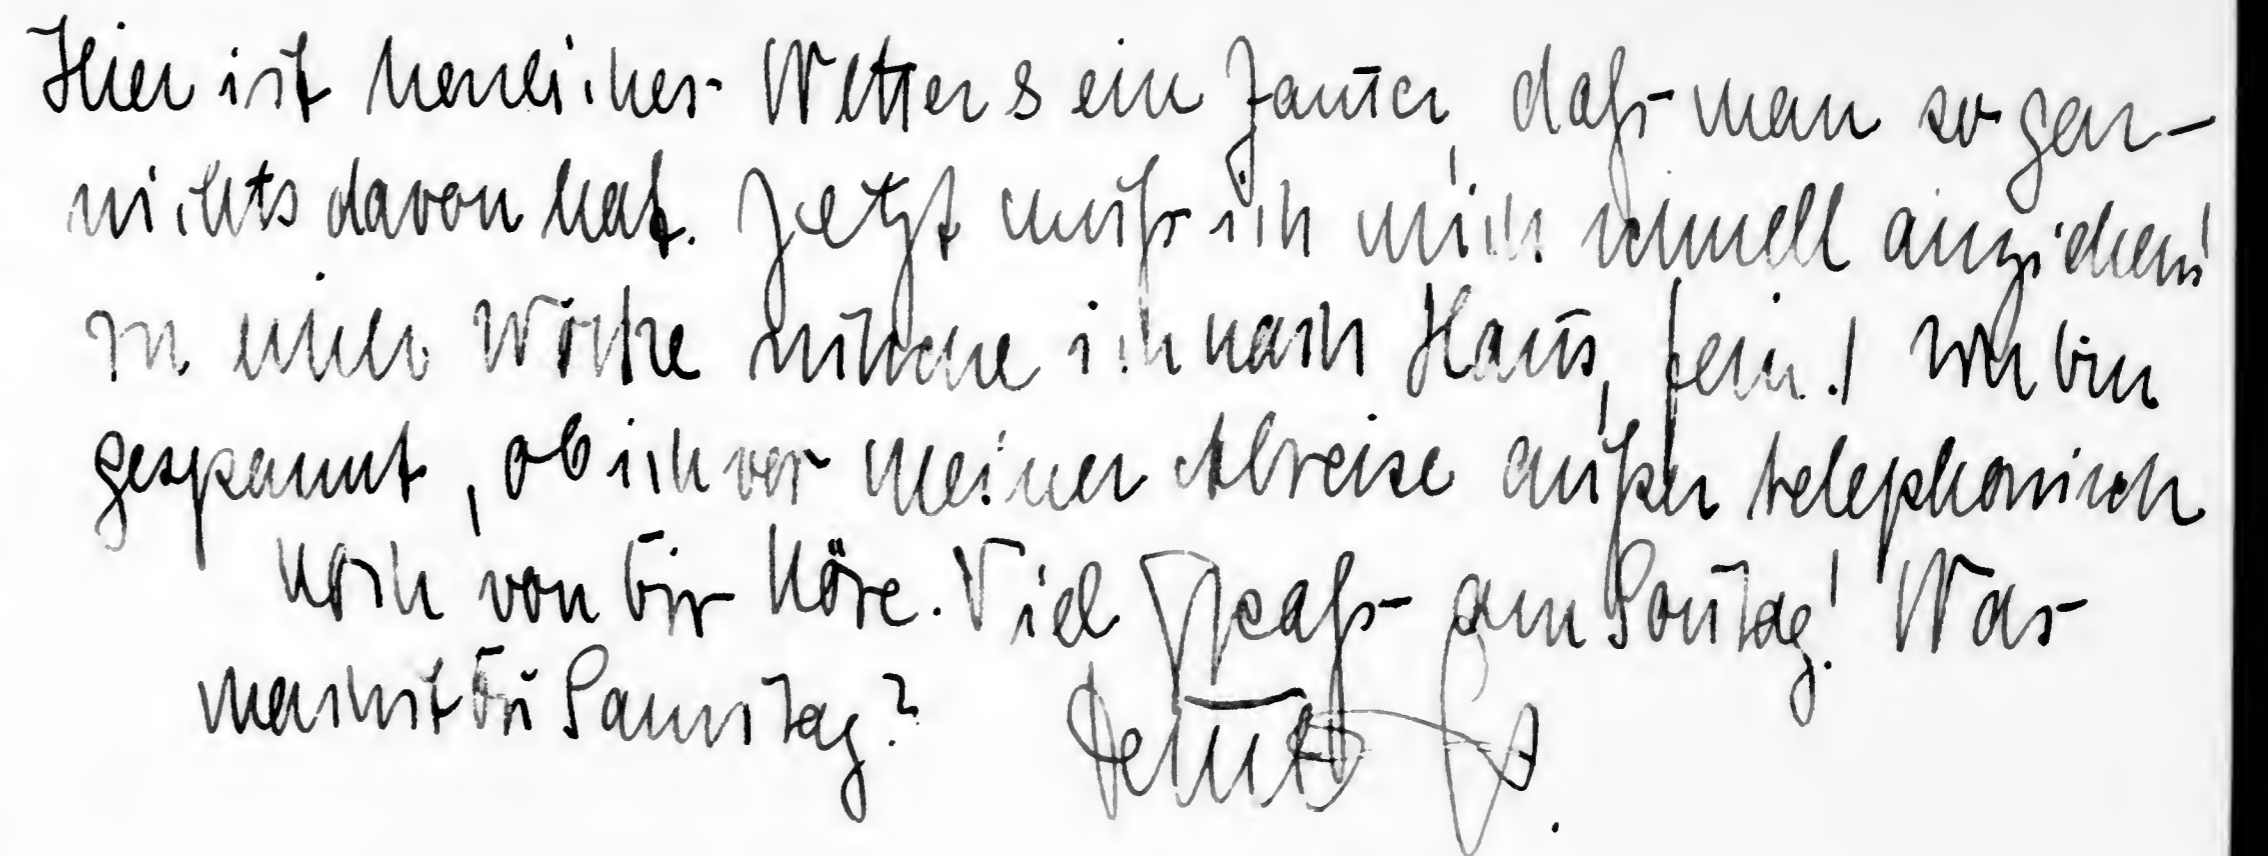 Hier ist herrliches Wetter & ein Jammer, daß man so gar-
nichts davon hat. Jetzt muß ich mich schnell anziehen!
In einer Woche nehme ich nach Haus, fein! Ich bin
gespannt, ob ich vor meiner Abreise außer telephonisch
noch von Dir höre. Viel Spaß am Sonntag! Was
machst Du Samstag?